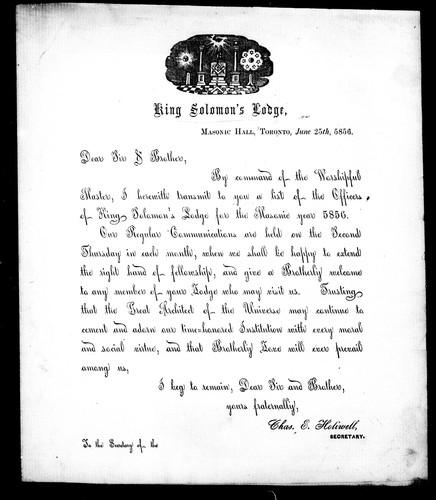 King Solomon's Lodge,
Masonic Hall, Toronto, June 25th, 5856.
Dear Sir & Brother,
By command of the Worshipful
Master, I herewith transmit to you a list of the Officers
of King Solomon's Lodge for the Masonic year 5856.
Our Regular Communications are held on the Second
Thursday in each month, when we shall be happy to extend
the right hand of fellowship, and give a Brotherly welcome
to any member of your Lodge who may visit us. Trusting
that the Great Architect of the Universe may continue to
cement and adorn our time-honored Institution with every moral
and social virtue, and that Brotherly Love will ever prevail
among us,
I beg to remain, Dear Sir and Brother,
yours fraternally,
Chas. E. Holiwell,
SECRETARY.
To the Secretary of the